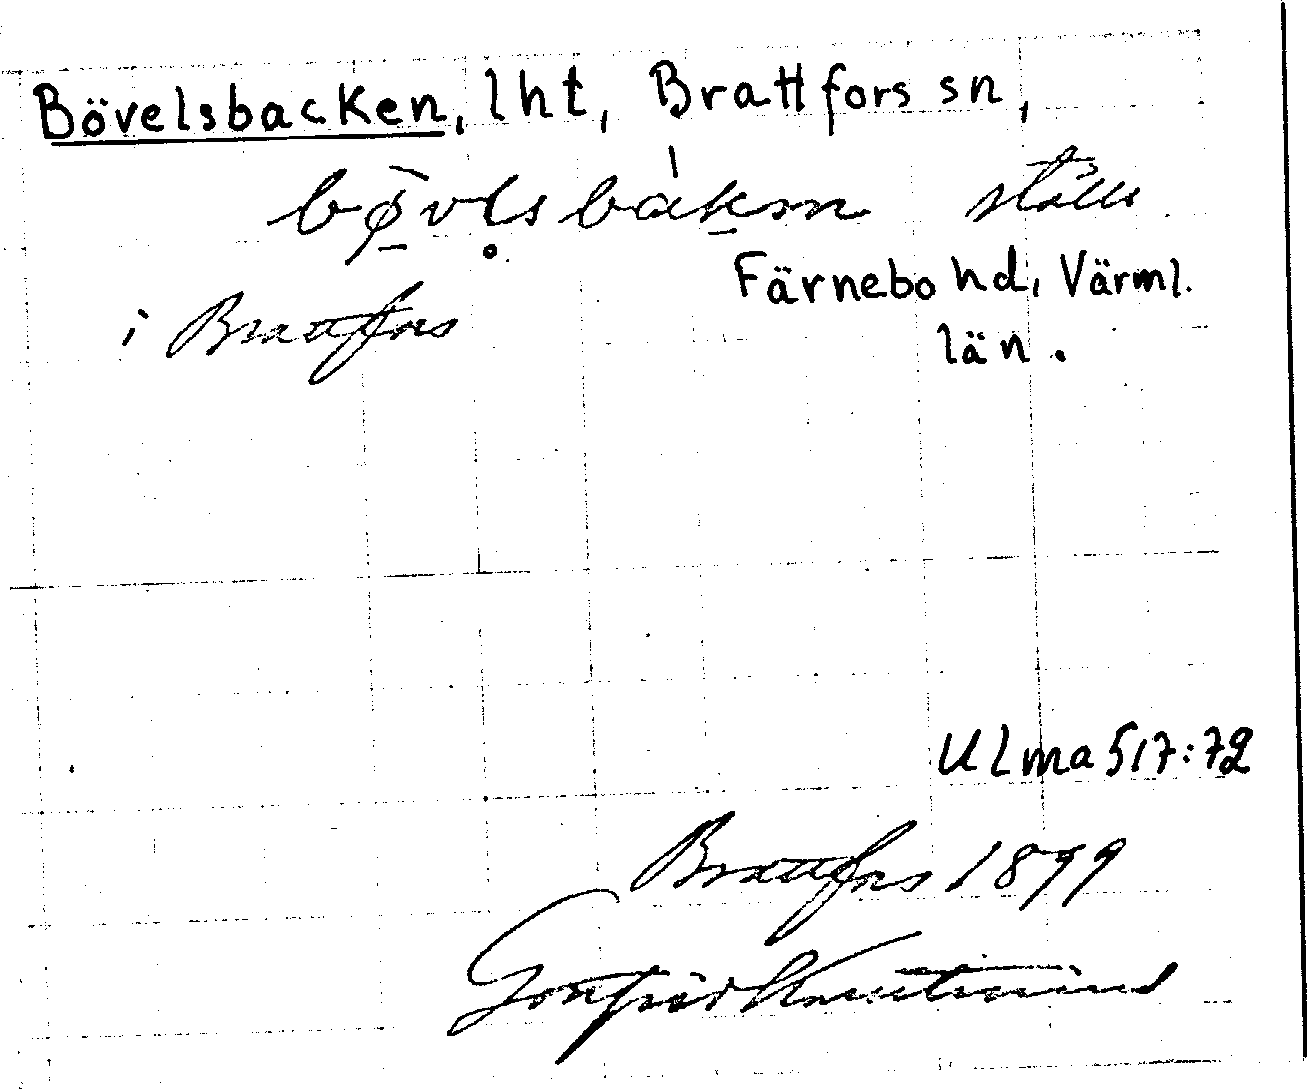 Bövelsbacken, lht, Brattfors sn,
bø̀vl̥sbakɯn ställe
Färnebo hd, Värml.
i Brattfors
län.
Ulma 517:72
Brattfors 1899